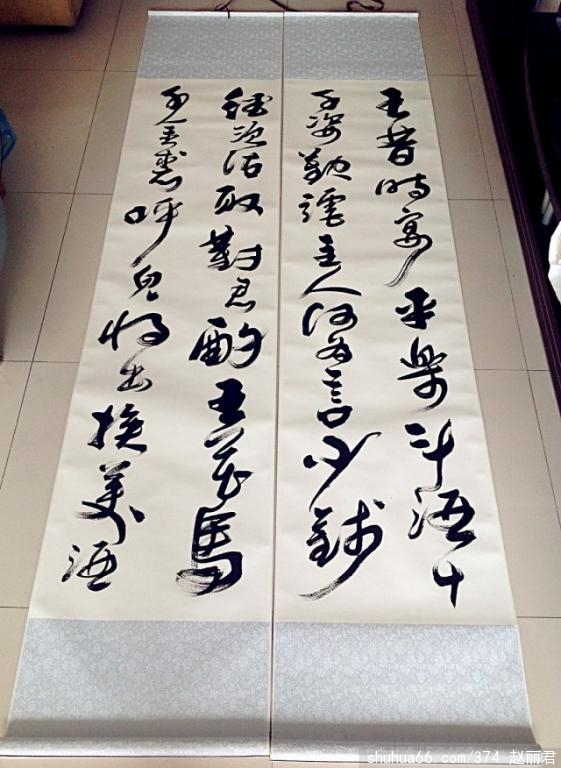 王昔時宴平樂斗酒十
千恣歡謔主人何為言少錢
徑須沽取對君酌五花馬
千金裘呼兒將出換美酒
shuhua66.com/374 赵丽君